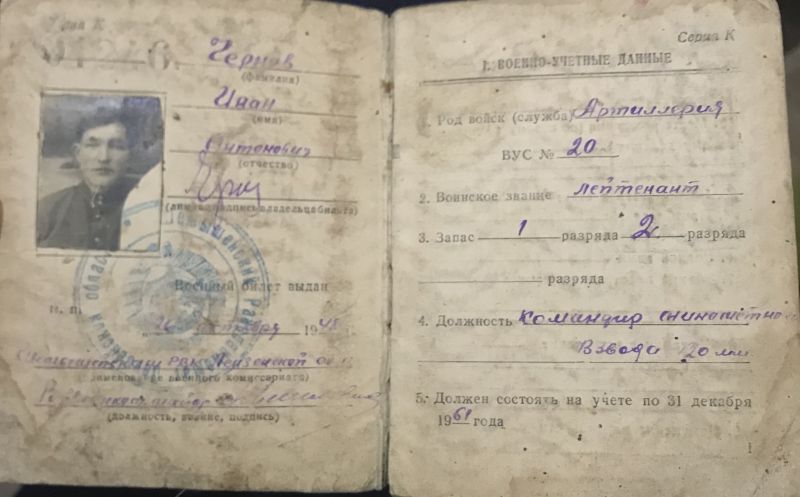 Серия К
Чернов
(фамилия)
Иван
(имя)
Антонович
(отчество)
(личная подпись владельца билета)
Военный билет выдан
М. П.
26 октября 1948 г.
РВК Пензенской обл.
(наименование военного комиссариата)
майор
(должность, звание, подпись)
Серия К
I. ВОЕННО-УЧЕТНЫЕ ДАННЫЕ
1. Род войск (служба) Артиллерия
ВУС № 20
2. Воинское звание лейтенант
3. Запас 1 разряда 2 разряда
разряда
4. Должность Командир
Взвода 120 мм.
5. Должен состоять на учете по 31 декабря
1961 года
1